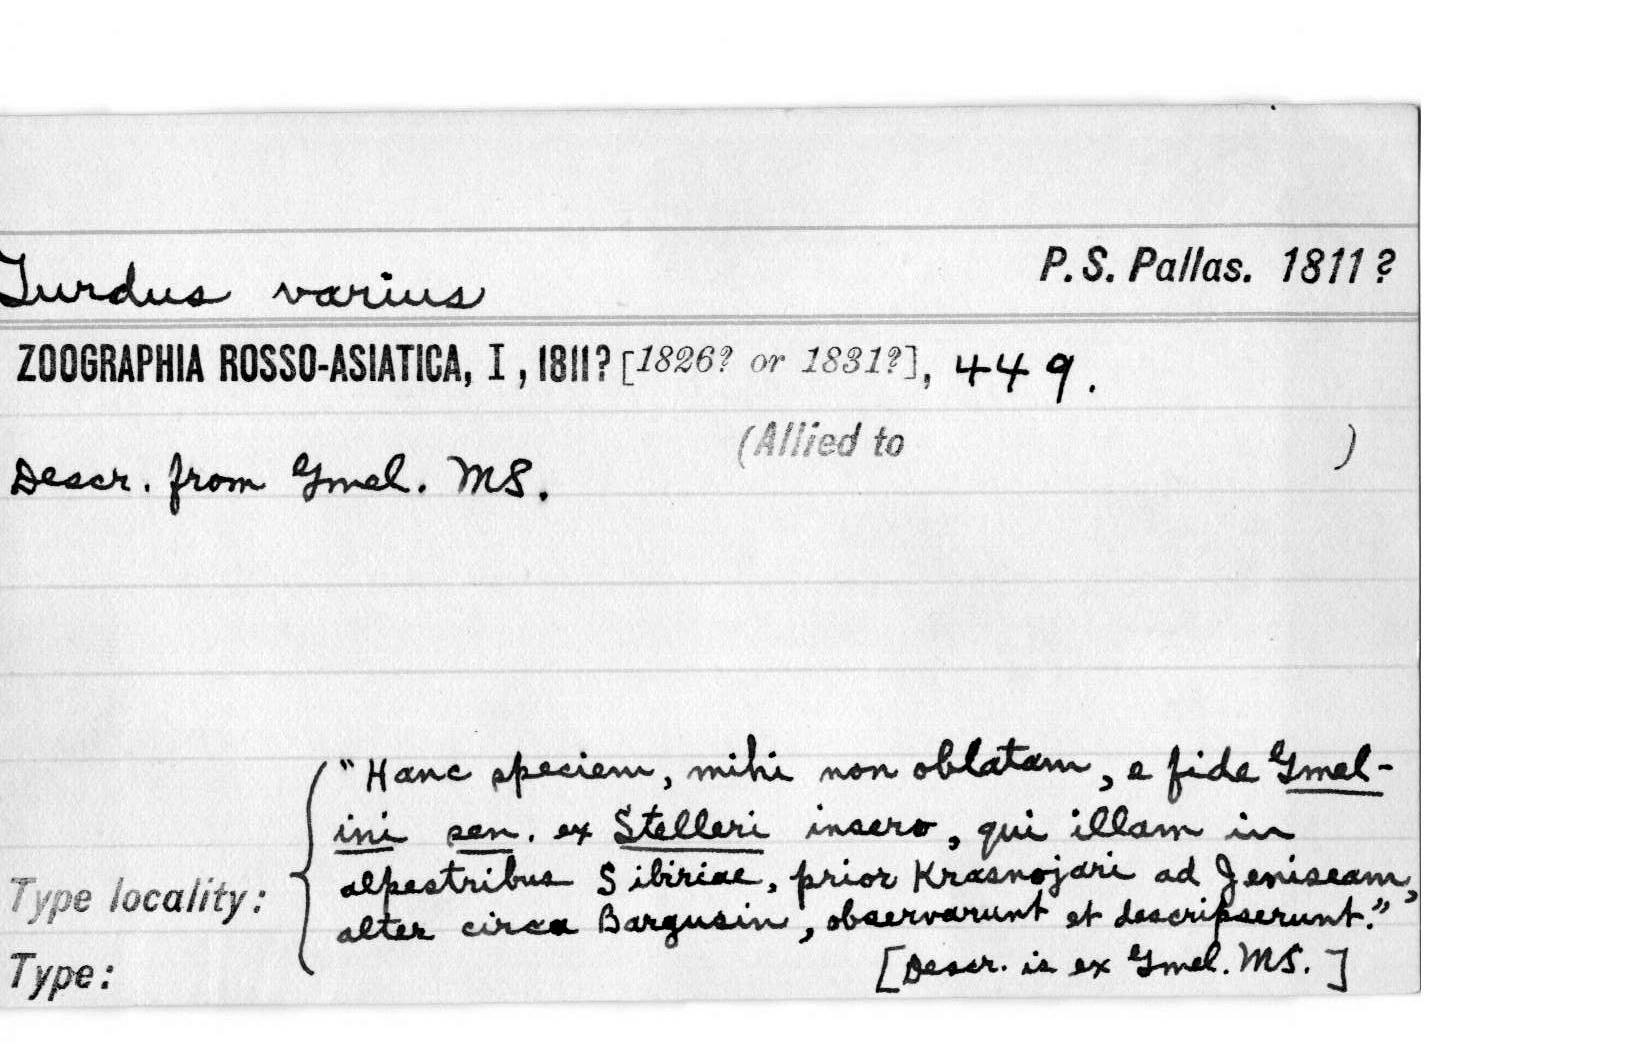 Turdus varius P.S. Pallas. 1811?
ZOOGRAPHIA ROSSO-ASIATICA, I, 1811? [1826? or 1831?], 449.
(Allied to )
Descr. from Gmel. MS.
"Hanc speciem, mihi non oblatam, e fide Gmel-
ini sen. ex Stelleri insero, qui illam in
alpestribus Sibiriae, prior Krasnojari ad Jeniseam,
Type locality:
alter circa Bargusin, observarunt et descripserunt."
Type: [Descr. is ex Gmel. MS.]